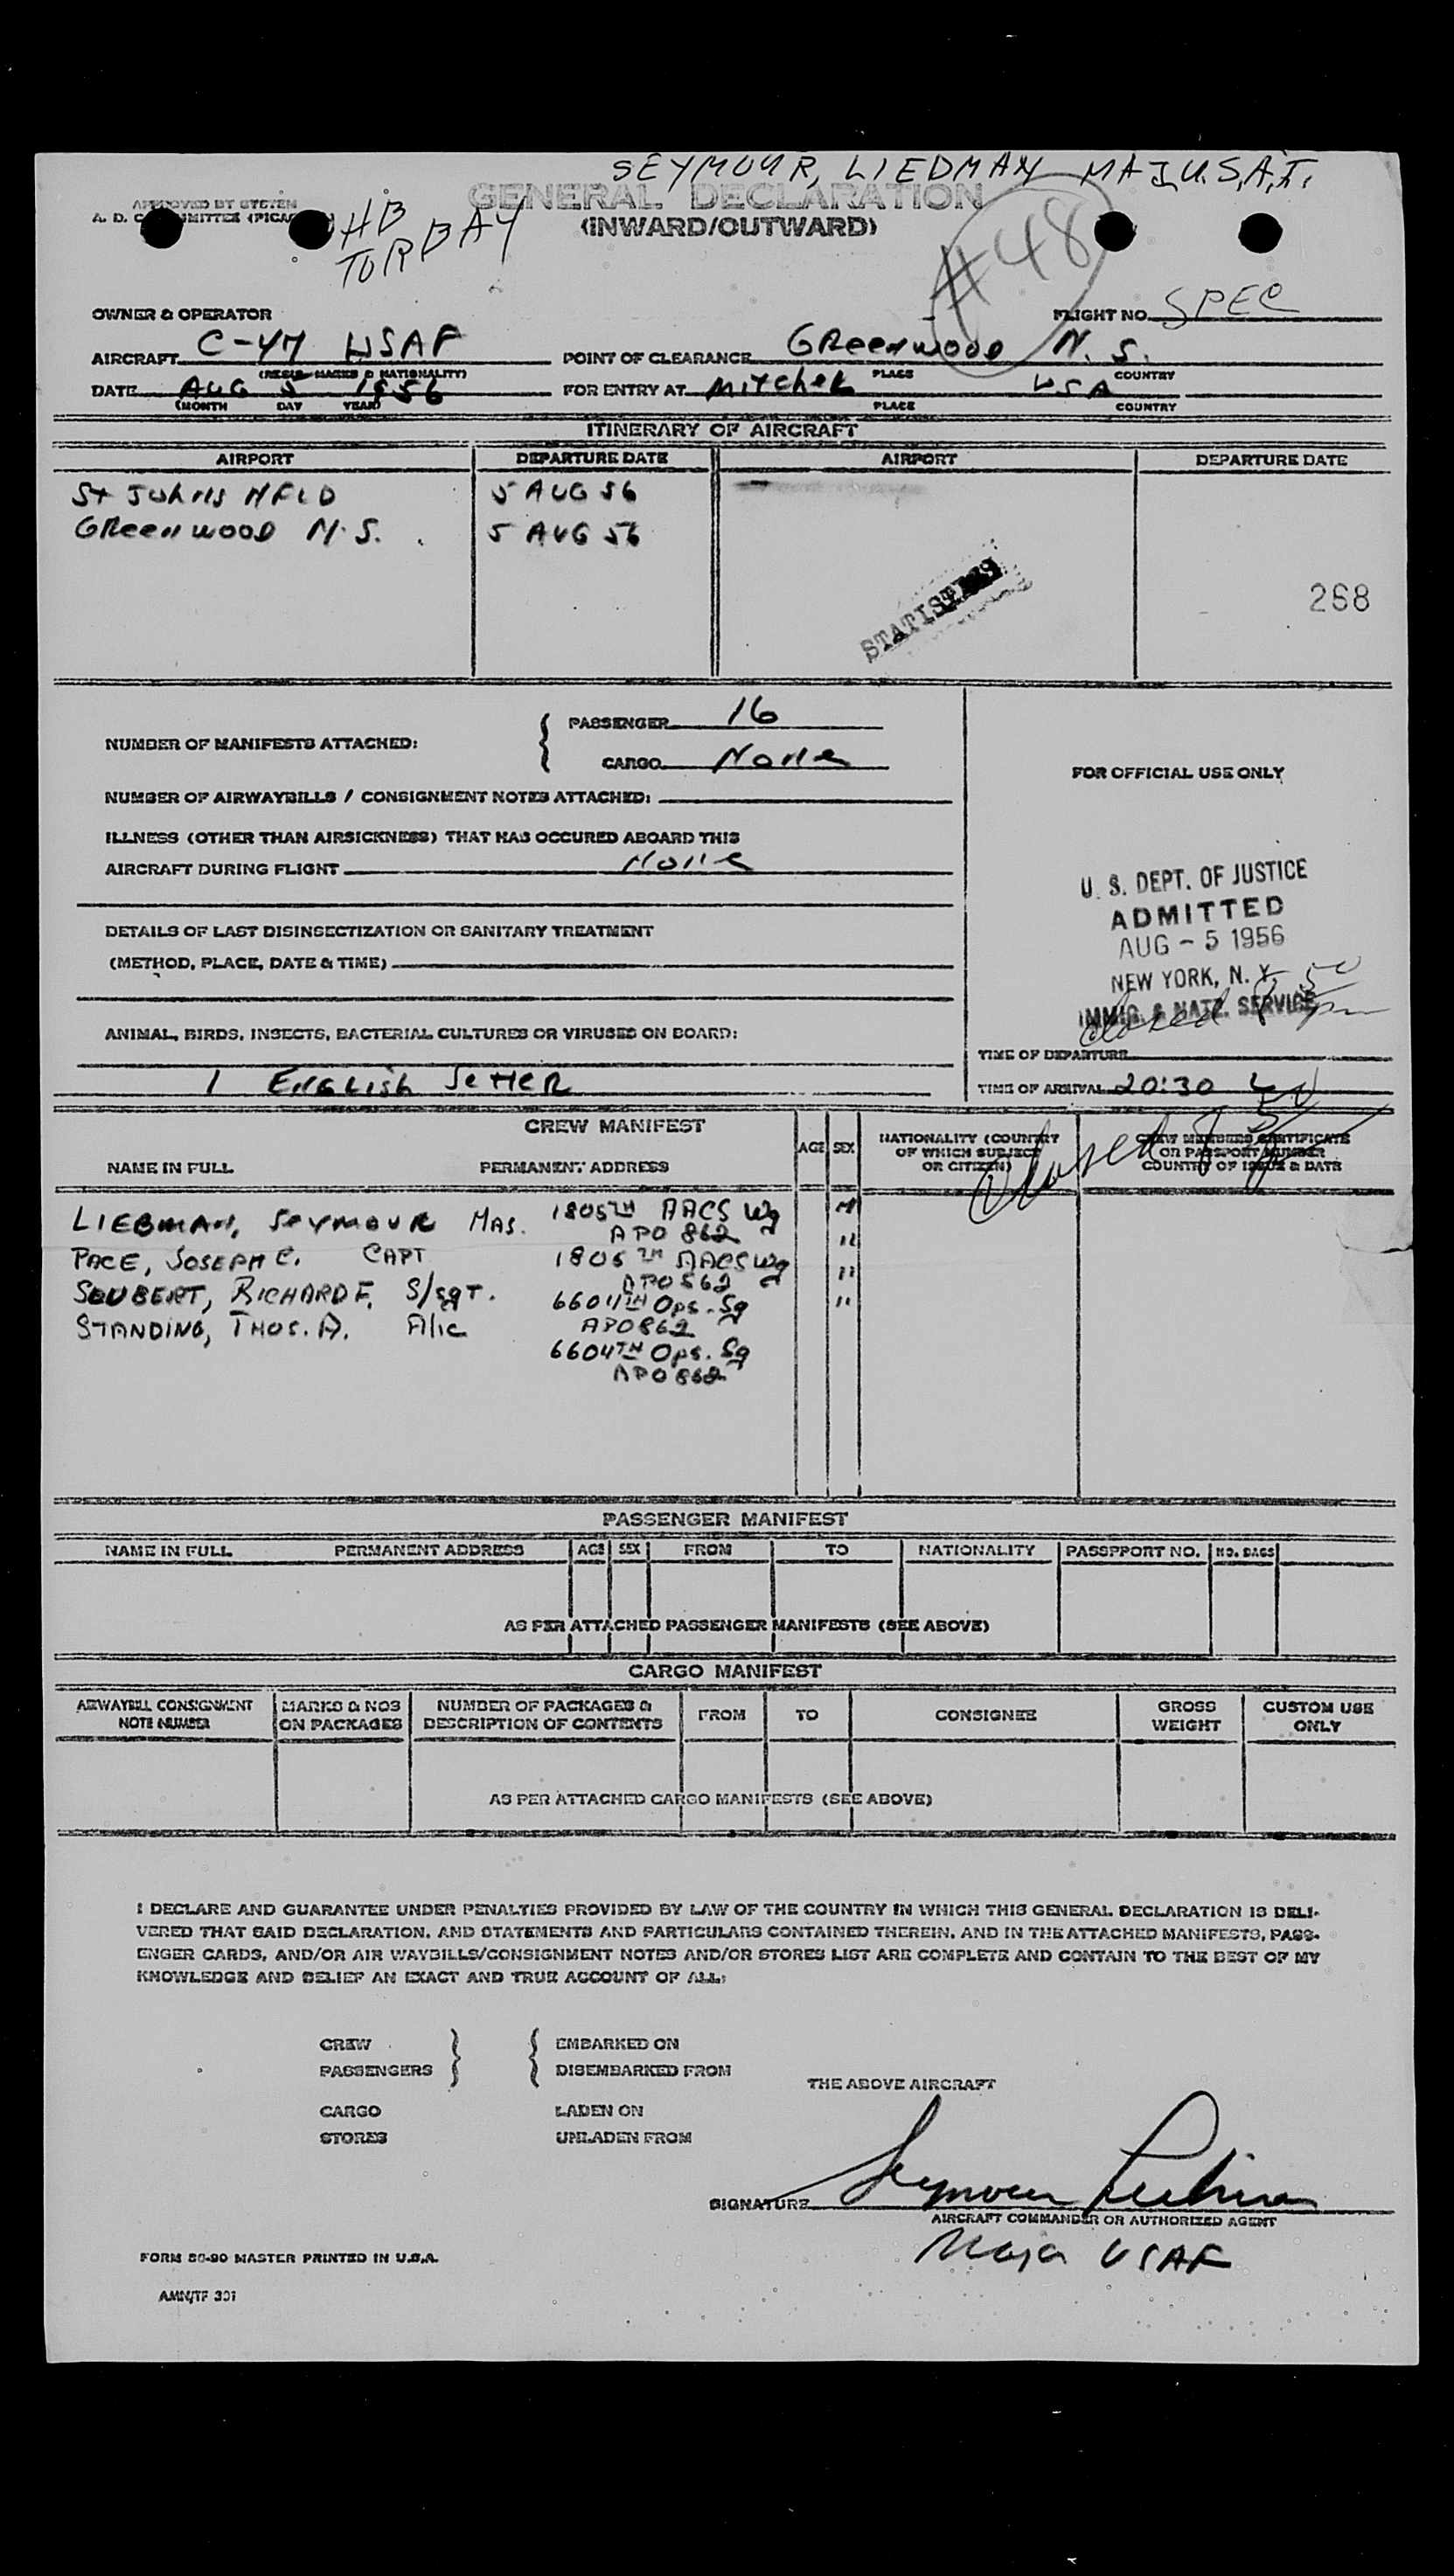 SEYMOUR, LIEDMAN MAJ U.S.A.F.
GENERAL DECLARATION
(INWARD/OUTWARD)
APPROVED BY SYSTEM
HB
TORBAY
#48
OWNER & OPERATOR
FLIGHT NO. SPEC
AIRCRAFT C-47 USAF POINT OF CLEARANCE Greenwood N.S.
(REGIS. MARKS & NATIONALITY) PLACE COUNTRY
DATE AUG 5 1956 FOR ENTRY AT Mitchel USA
(MONTH DAY YEAR) PLACE COUNTRY
ITINERARY OF AIRCRAFT
AIRPORT DEPARTURE DATE AIRPORT DEPARTURE DATE
St Johns NFLD 5 AUG 56
Greenwood N.S. 5 AUG 56
268
PASSENGER 16
NUMBER OF MANIFESTS ATTACHED:
CARGO None
FOR OFFICIAL USE ONLY
NUMBER OF AIRWAYBILLS / CONSIGNMENT NOTES ATTACHED:
ILLNESS (OTHER THAN AIRSICKNESS) THAT HAS OCCURED ABOARD THIS
AIRCRAFT DURING FLIGHT None
U. S. DEPT. OF JUSTICE
ADMITTED
AUG - 5 1956
NEW YORK, N. Y.
IMMIG. & NATZ. SERVICE
DETAILS OF LAST DISINSECTIZATION OR SANITARY TREATMENT
(METHOD, PLACE, DATE & TIME)
ANIMAL, BIRDS, INSECTS, BACTERIAL CULTURES OR VIRUSES ON BOARD:
1 English Setter
TIME OF DEPARTURE
TIME OF ARRIVAL 20:30
CREW MANIFEST
NAME IN FULL PERMANENT ADDRESS AGE SEX NATIONALITY (COUNTRY
OF WHICH SUBJECT
OR CITIZEN) CREW MEMBERS CERTIFICATE
OR PASSPORT NUMBER
COUNTRY OF ISSUE & DATE
LIEBMAN, SEYMOUR MAJ. 1805TH AACS Wg M
APO 862
PACE, JOSEPH C. CAPT 1805TH AACS Wg "
APO 862
SOUBERT, RICHARD F. S/SGT. 6604TH Ops. Sq "
APO 862
STANDING, THOS. A. A/1C "
6604TH Ops. Sq
APO 862
PASSENGER MANIFEST
NAME IN FULL PERMANENT ADDRESS AGE SEX FROM TO NATIONALITY PASSPPORT NO. NO. BAGS
AS PER ATTACHED PASSENGER MANIFESTS (SEE ABOVE)
CARGO MANIFEST
AIRWAYBILL CONSIGNMENT
NOTE NUMBER
MARKS & NOS
ON PACKAGES
NUMBER OF PACKAGES &
DESCRIPTION OF CONTENTS
FROM TO CONSIGNEE
GROSS
WEIGHT
CUSTOM USE
ONLY
AS PER ATTACHED CARGO MANIFESTS (SEE ABOVE)
I DECLARE AND GUARANTEE UNDER PENALTIES PROVIDED BY LAW OF THE COUNTRY IN WHICH THIS GENERAL DECLARATION IS DELI-
VERED THAT SAID DECLARATION, AND STATEMENTS AND PARTICULARS CONTAINED THEREIN, AND IN THE ATTACHED MANIFESTS, PASS-
ENGER CARDS, AND/OR AIR WAYBILLS/CONSIGNMENT NOTES AND/OR STORES LIST ARE COMPLETE AND CONTAIN TO THE BEST OF MY
KNOWLEDGE AND BELIEF AN EXACT AND TRUE ACCOUNT OF ALL:
CREW EMBARKED ON
PASSENGERS DISEMBARKED FROM
THE ABOVE AIRCRAFT
CARGO LADEN ON
STORES UNLADEN FROM
SIGNATURE Seymour Liebman
AIRCRAFT COMMANDER OR AUTHORIZED AGENT
Major USAF
FORM 50-90 MASTER PRINTED IN U.S.A.
AMN/TF 301